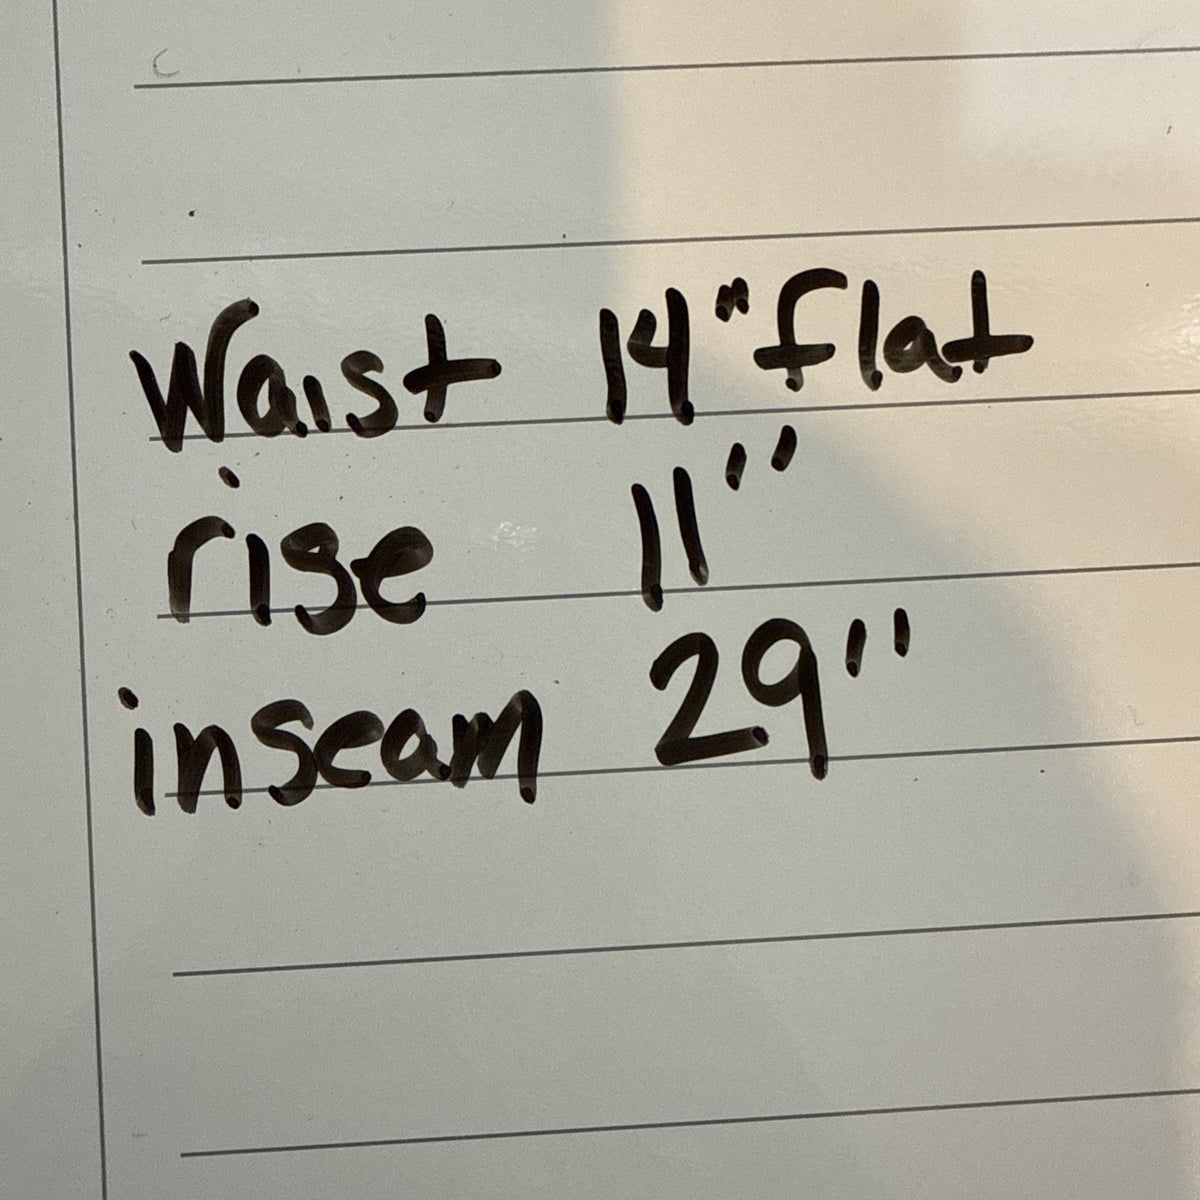 Waist 14" flat
rise 11"
inseam 29"